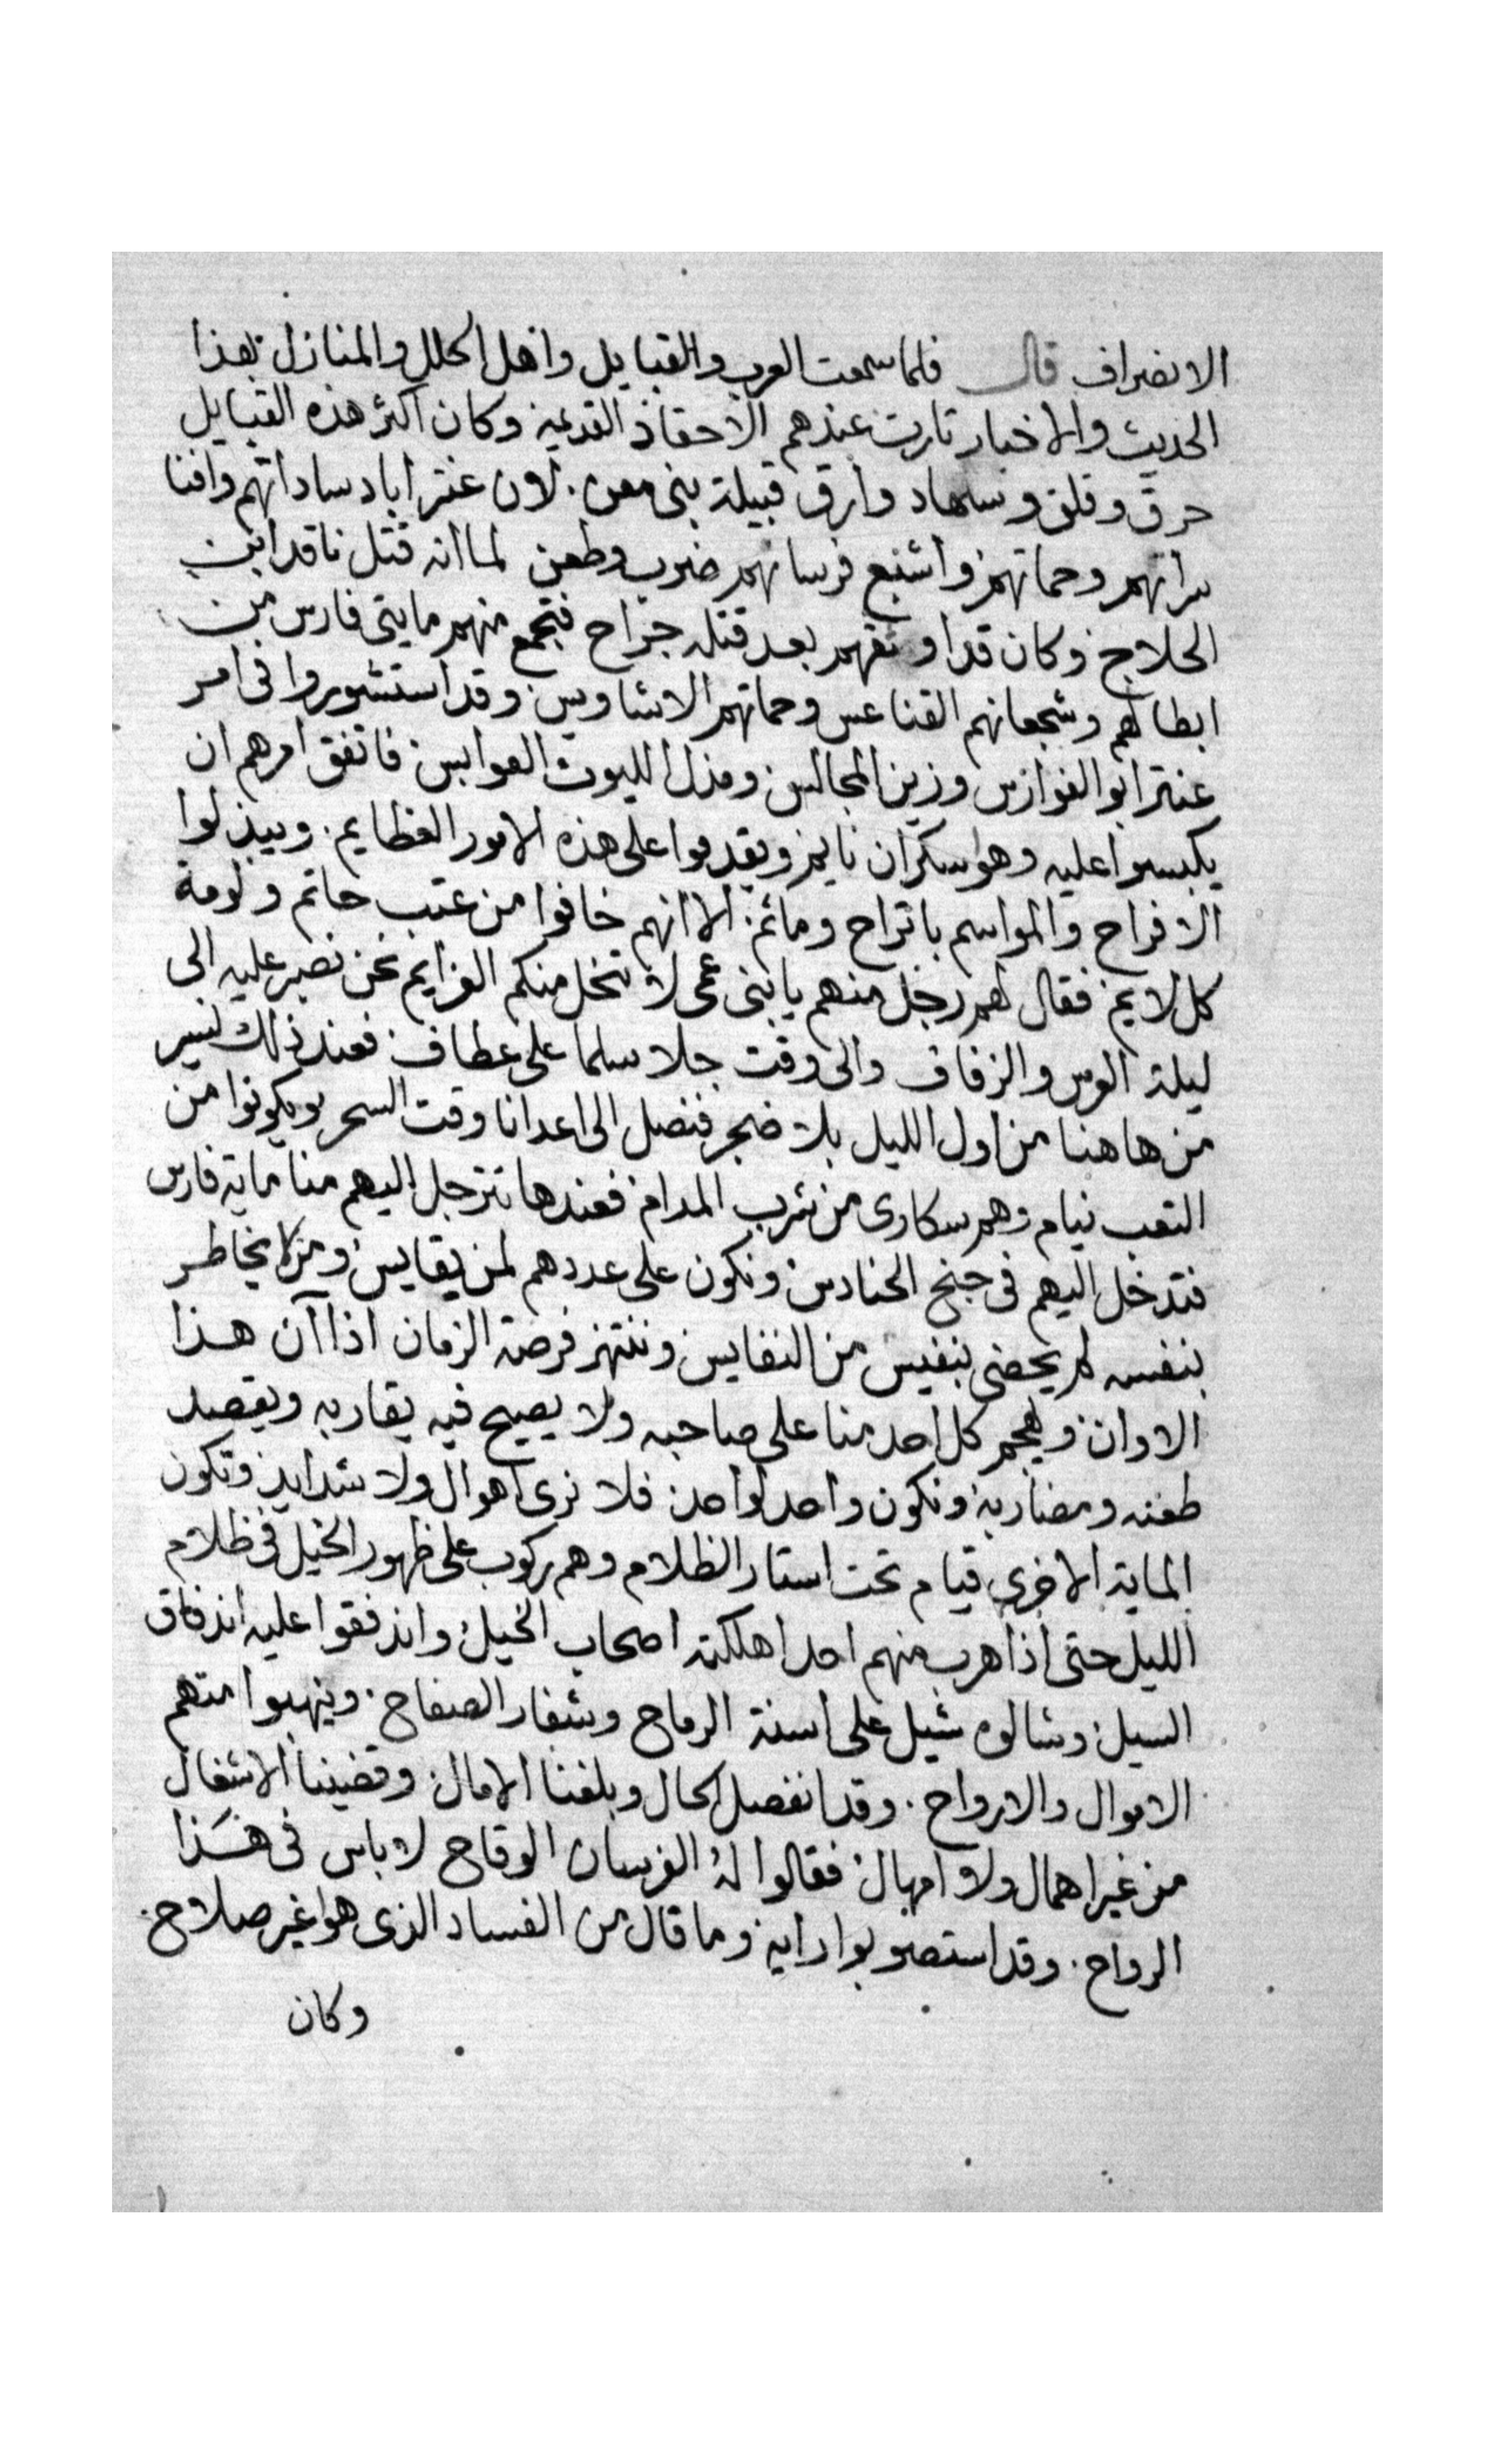 الانصراف قال فلما سمعت العرب والقبايل واهل الحلل والمنازل بهذا
الحديث والاخبار تارت عندهم الاحقاد القديمه وكان اكثر هذه القبايل
حرق وقلق وسهاد وارق قبيلة بنى معن. لان عنتر اباد ساداتهم وافنا
سراتهم وحماتهم واشبع فرسانهم ضرب وطعن لما انه قتل ناقد ابن
الجلاح وكان قد اوثقهم بعد قتله جراح فتجمع منهم مايتى فارس من
ابطالهم وشجعانهم القناعس وحماتهم الاشاوس وقد استشوروا فى امر
عنتر ابو الفوارس وزين المجالس ومذل الليوث العوابس فاتفق امرهم ان
يكبسوا عليه وهو سكران نايم ويقدموا على هذه الامور العظايم. ويبذلوا
الافراح والمواسم باتراح ومائم. الا انهم خافوا من عتب حاتم ولومة
كل لايم فقال لهم رجل منهم يا بنى عمى لا تنحل منكم العزايم نحن نصبر عليه الى
ليلة العرس والزفاف والى وقت جلا سلما على عطاف فعند ذلك نسير
من هاهنا من اول الليل بلا ضجر فنصل الى اعدانا وقت السحر ويكونوا من
التعب نيام وهم سكارى من شرب المدام فعندها نترجل اليهم منا ماية فارس
فتدخل اليهم فى جنح الحنادس ونكون على عددهم لمن يقايس ومن لا يخاطر
بنفسه لم يحضى بنفيس من النفايس وننتهز فرصة الزمان اذا آن هذا
الاوان ويهجم كل احد منا على صاحبه ولا يصيح فيه يقاربه ويقصد
طعنه ومضاربه ونكون واحد لواحد فلا نرى اهوال ولا شدايد وتكون
الماية الاخرى قيام تحت استار الظلام وهم ركوب على ظهور الخيل فى ظلام
الليل حتى اذا هرب منهم احد اهلكته اصحاب الخيل واندفقوا عليه اندفاق
السيل وشالوه شيل على اسنة الرماح وشفار الصفاح. وينهبوا منهم
الاموال والارواح. وقد انفصل الحال وبلغنا الامال. وقضينا الاشغال
من غير اهمال ولا امهال فقالوا له الفرسان الوقاح لا باس فى هذا
الرواح. وقد استصوبوا رايه وما قال من الفساد الذى هو اغير صلاح.
وكان